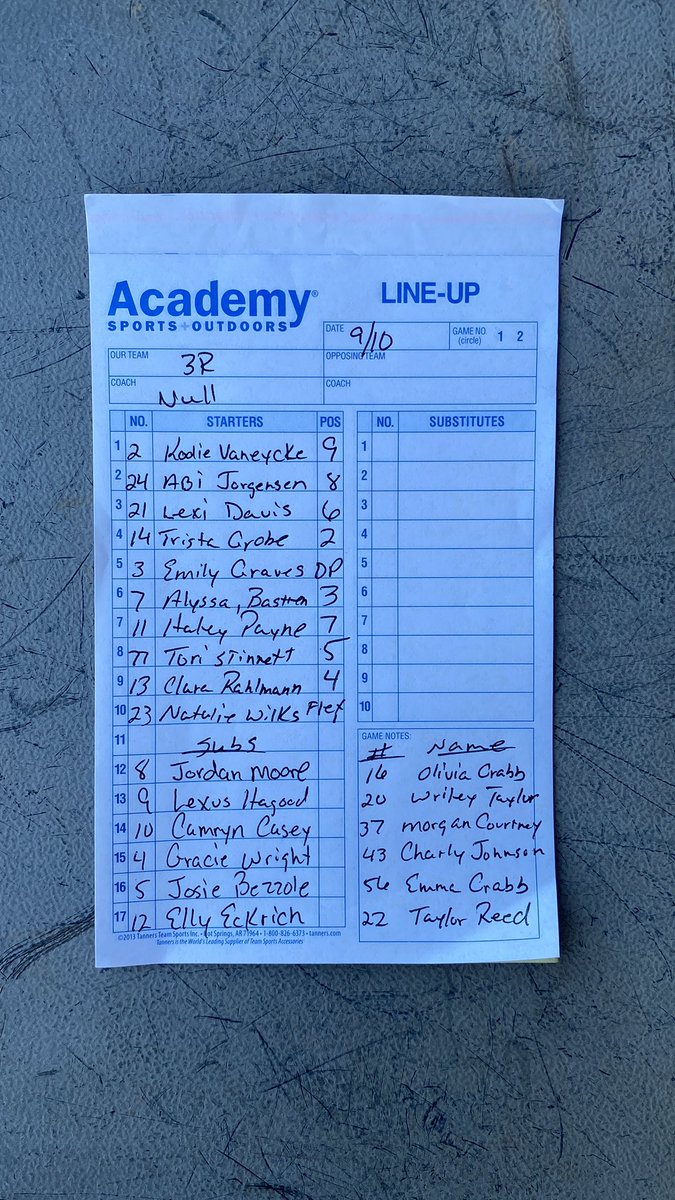 Academy®
SPORTS+OUTDOORS
LINE-UP
DATE 9/10
GAME NO. (circle) 1 2
OUR TEAM 3R
OPPOSING TEAM
COACH Null
COACH
NO. STARTERS POS
1 2 Kodie Vaneycke 9
2 24 ABi Jorgensen 8
3 21 Lexi Davis 6
4 14 Trista Grobe 2
5 3 Emily Graves DP
6 7 Alyssa, Bastien 3
7 11 Haley Payne 7
8 77 Tori Stinnett 5
9 13 Clara Rahlmann 4
10 23 Natalie Wilks Flex
11 Subs
12 8 Jordan Moore
13 9 Lexus Hagood
14 10 Camryn Casey
15 4 Gracie Wright
16 5 Josie Bezzole
17 12 Elly Eckrich
NO. SUBSTITUTES
1
2
3
4
5
6
7
8
9
10
GAME NOTES:
# Name
16 Olivia Crabb
20 Wriley Taylor
37 Morgan Courtney
43 Charly Johnson
56 Emma Crabb
22 Taylor Reed
©2013 Tanners Team Sports Inc. • Hot Springs, AR 71964 • 1-800-826-6373 • tanners.com
Tanners is the World's Leading Supplier of Team Sports Accessories